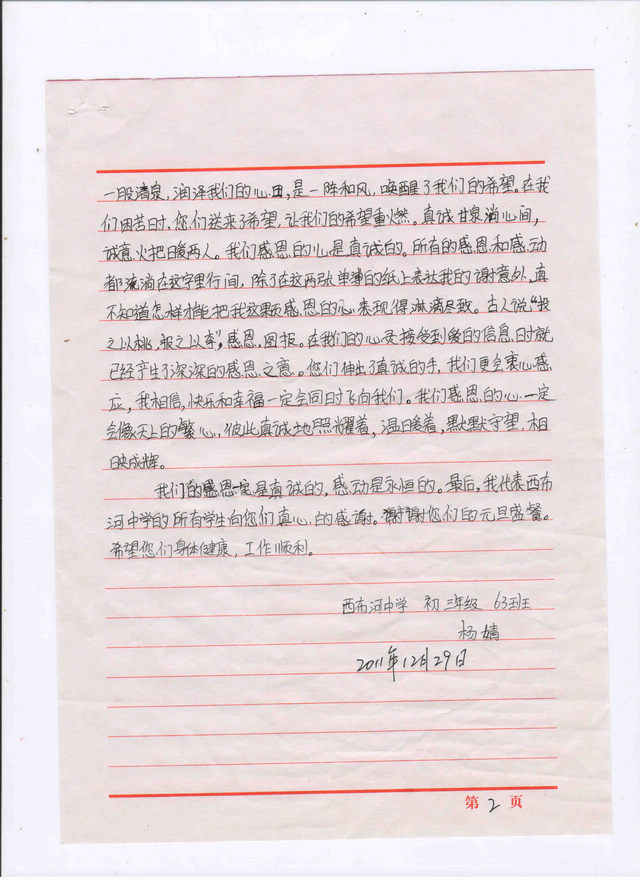 一股清泉,润泽我们的心田,是一阵和风,唤醒了我们的希望。在我
们困苦时,您们送来了希望,让我们的希望重燃。真诚甘泉淌心间,
诚意火把暖两人。我们感恩的心是真诚的。所有的感恩和感动
都流淌在这字里行间,除了在这两张单薄的纸上表达我的谢意外,真
不知道怎样才能把我这颗感恩的心表现得淋漓尽致。古人说“投
之以桃,报之以李”,感恩,图报。在我们的心灵接受到爱的信息时就
已经产生了深深的感恩之意。您们伸出了真诚的手,我们更会衷心感
应,我相信,快乐和幸福一定会同时飞向我们。我们感恩的心一定
会像天上的繁心,彼此真诚地照耀着,温暖着,默默守望,相
映成辉。
我们的感恩是真诚的,感动是永恒的。最后,我代表西布
河中学的所有学生向您们真心的感谢。谢谢您们的元旦盛餐。
希望您们身体健康,工作顺利。
西布河中学 初三年级 63班
杨婧
2011年12月29日
第2页